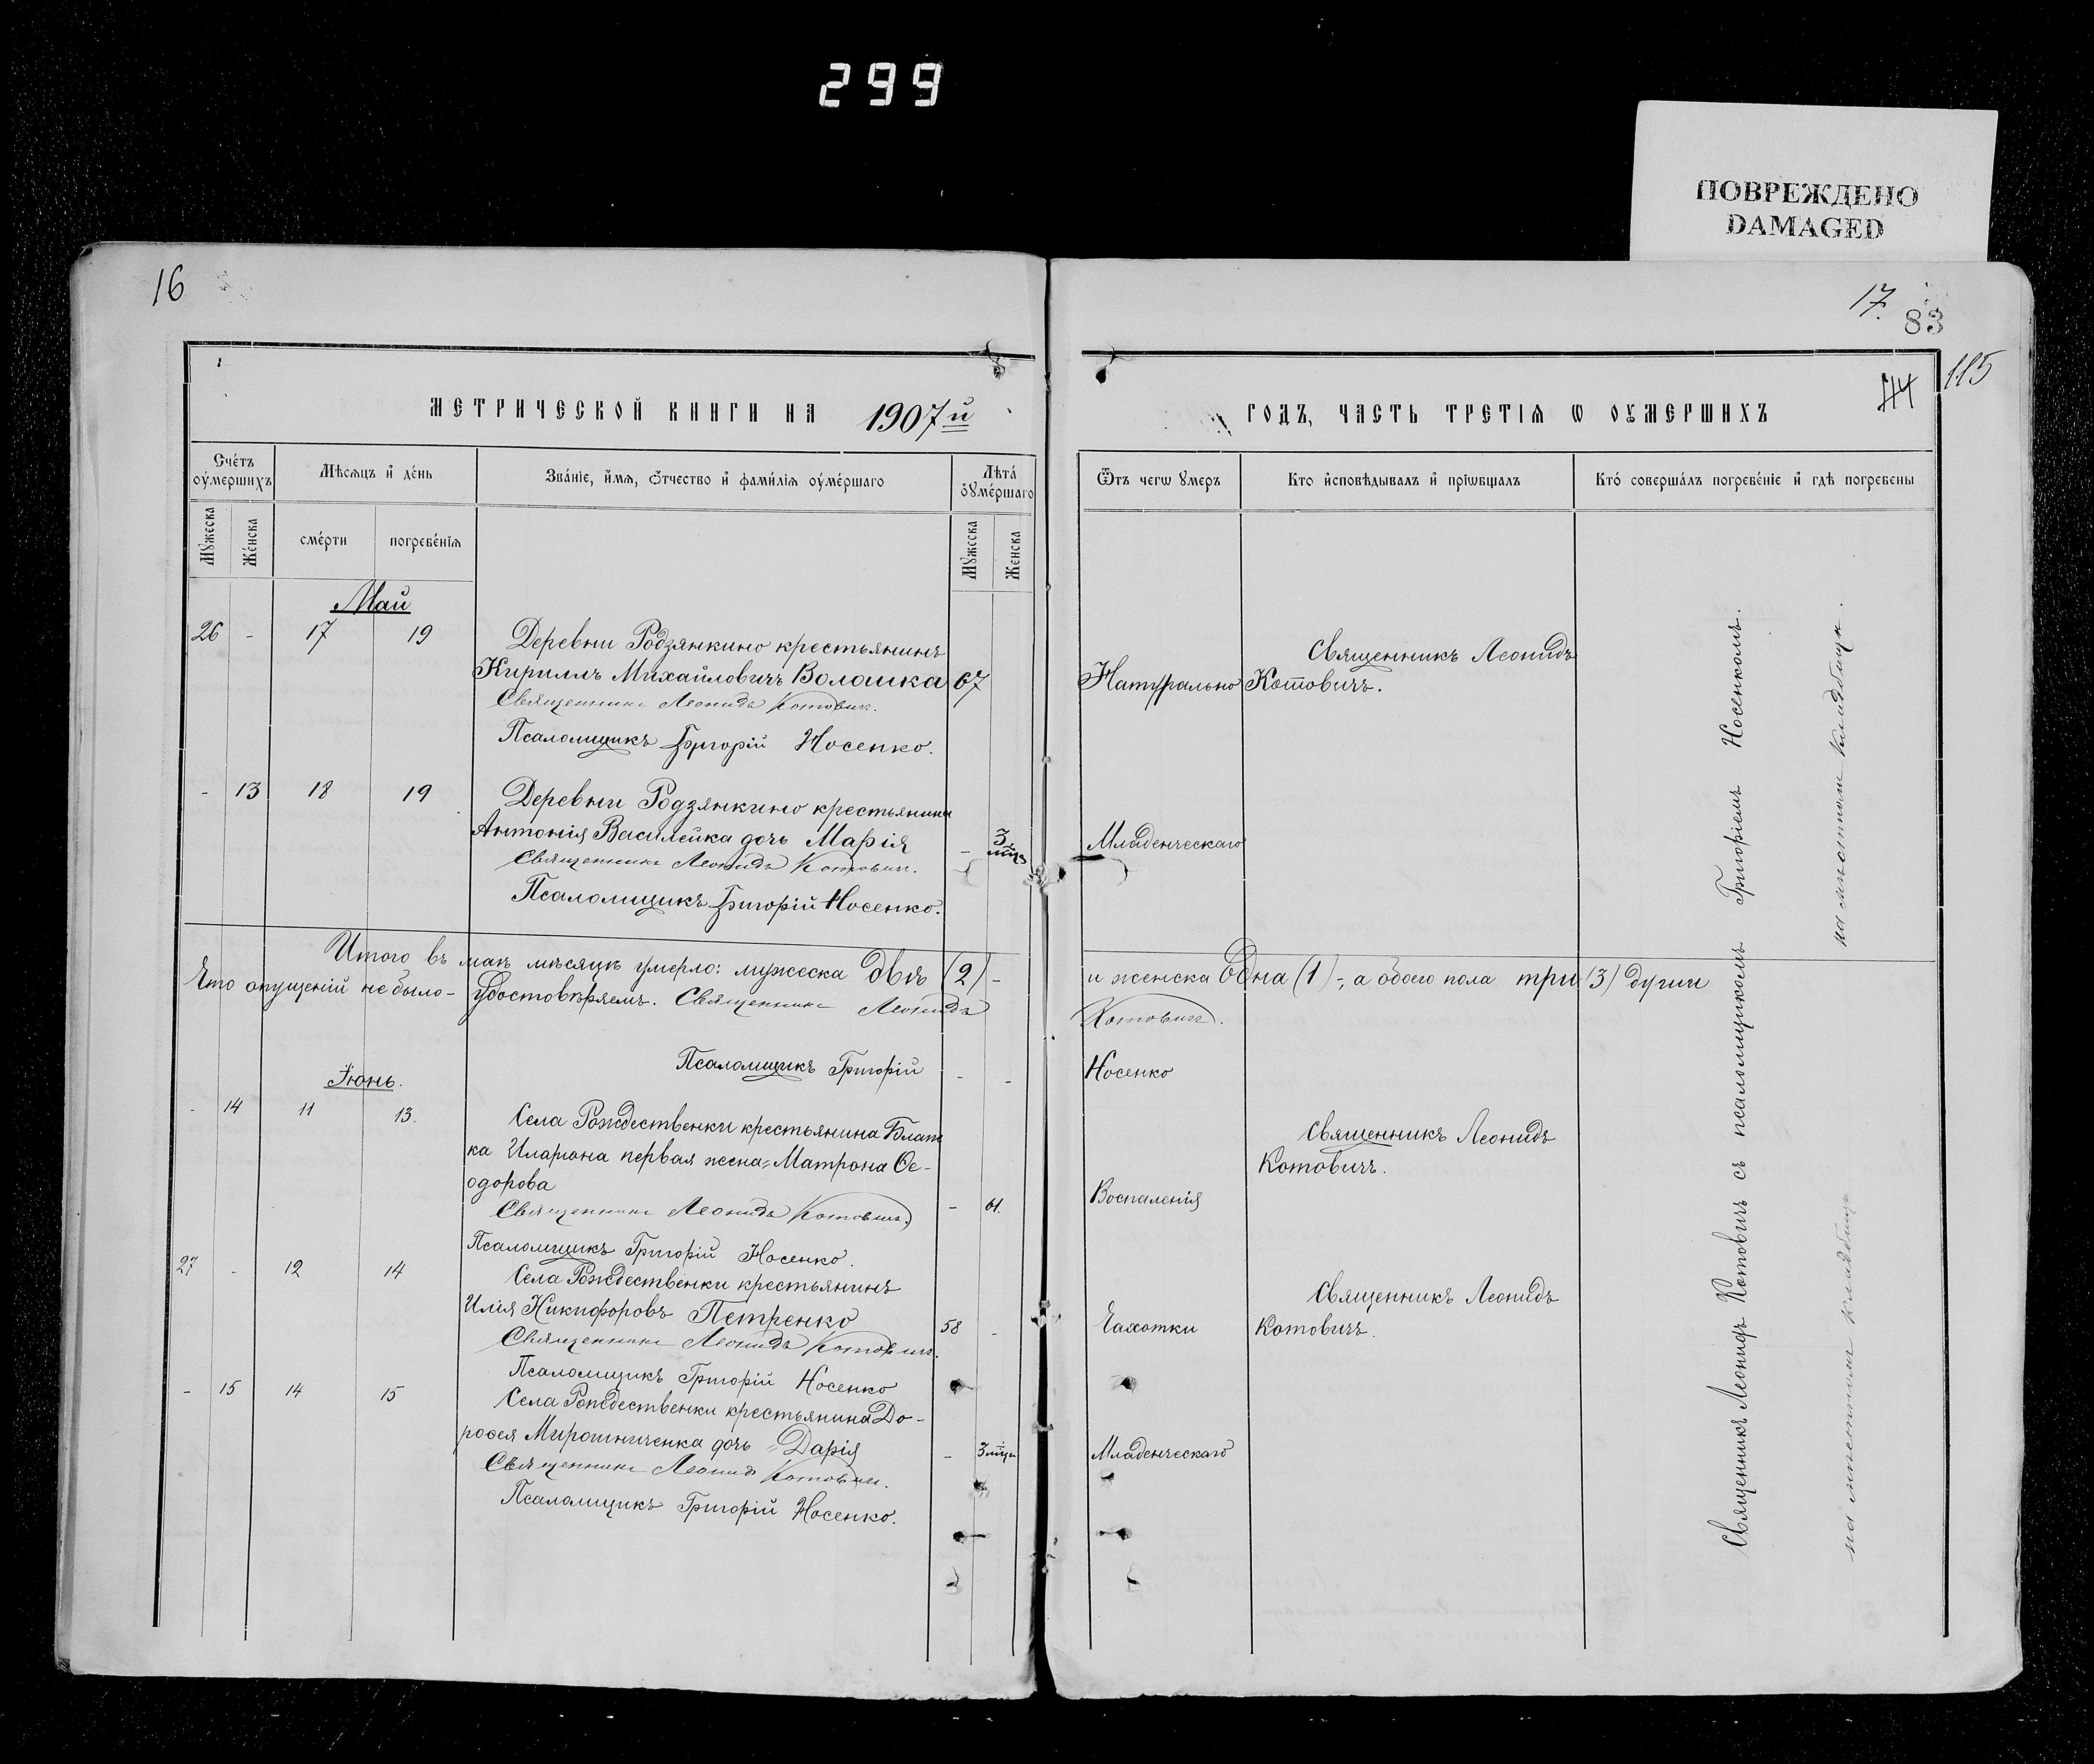 299
ПОВРЕЖДЕНО
DAMAGED
16
17.
83
115
114
МЕТРИЧЕСКОЙ КНИГИ НА 1907й
ГОДЪ, ЧАСТЬ ТРЕТІѦ Ѡ ОУМЕРШИХЪ
Счетъ оумершихъ
Мѣсѧцъ и день
Званіе, имѧ, отчество и фамиліѧ оумершаго
Лѣта оумершаго
Ѿтъ чегѡ умеръ
Кто исповѣдывалъ и пріѡбщалъ
Кто совершалъ погребеніе и гдѣ погребены
Мужеска
Женска
смерти
погребеніѧ
Мужеска
Женска
Май
26 - 17 19
Деревни Родзянкино крестьянинъ
Кириллъ Михайловичъ Волошка 67
Священникъ Леонидъ Котовичъ.
Псаломщикъ Григорій Носенко.
Натурально
Священникъ Леонидъ
Котовичъ.
- 13 18 19
Деревни Родзянкино крестьянина
Антонія Василейка дочь Марія
- 3 мца
Священникъ Леонидъ Котовичъ.
Псаломщикъ Григорій Носенко.
Младенческаго
Итого въ маѣ мѣсяцѣ умерло: мужеска двѣ (2) - и женска одна (1) -, а обоего пола три (3) души
Что опущеній не было - удостовѣряемъ. Священникъ Леонидъ Котовичъ.
Псаломщикъ Григорій - - Носенко
Іюнь.
- 14 11 13.
Села Рождественки крестьянина Блат
ка Иларіона первая жена = Матрона Ѳе-
одорова
- 61.
Священникъ Леонидъ Котовичъ.
Псаломщикъ Григорій Носенко.
Воспаленія
Священникъ Леонидъ
Котовичъ.
27 - 12 14
Села Рождественки крестьянинъ
Илія Никифоровъ Петренко
58 -
Священникъ Леонидъ Котовичъ.
Псаломщикъ Григорій Носенко
Чахотки
Священникъ Леонидъ
Котовичъ.
- 15 14 15
Села Рождественки крестьянина До-
роѳея Мирошниченка дочь = Дарія
- 3 мца
Священникъ Леонидъ Котовичъ.
Псаломщикъ Григорій Носенко.
Младенческаго
Священникъ Леонидъ Котовичъ съ псаломщикомъ Григоріемъ Носенкомъ.
на мѣстномъ кладбищѣ
на мѣстномъ кладбищѣ.